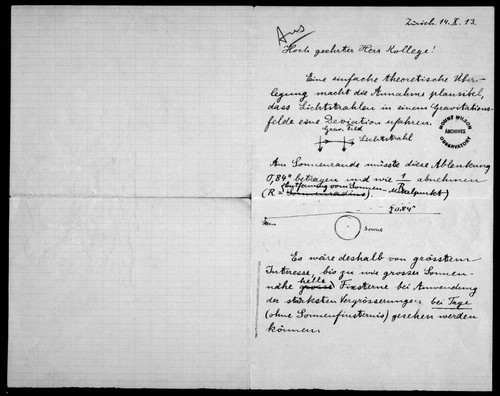 Zürich. 14. X. 13.
Aus
Hoch geehrter Herr Kollege!
Eine einfache theoretische Über-
legung macht die Annahme plausibel,
dass Lichtstrahlen in einem Gravitations-
felde eine Deviation erfahren.
MOUNT WILSON
ARCHIVES
OBSERVATORY
Grav. Feld
Lichtstrahl
Am Sonnenrande müsste diese Ablenkung
0,84" betragen und wie 1/R abnehmen
(R = Sonnenradius). Entfernung vom Sonnen-Mittelpunkt)
0,84"
Stern
Sonne
Es wäre deshalb von grösstem
Interesse, bis zu wie grosser Sonnen-
nähe grosse helle Fixsterne bei Anwendung
der stärksten Vergrösserungen bei Tage
(ohne Sonnenfinsternis) gesehen werden
können.